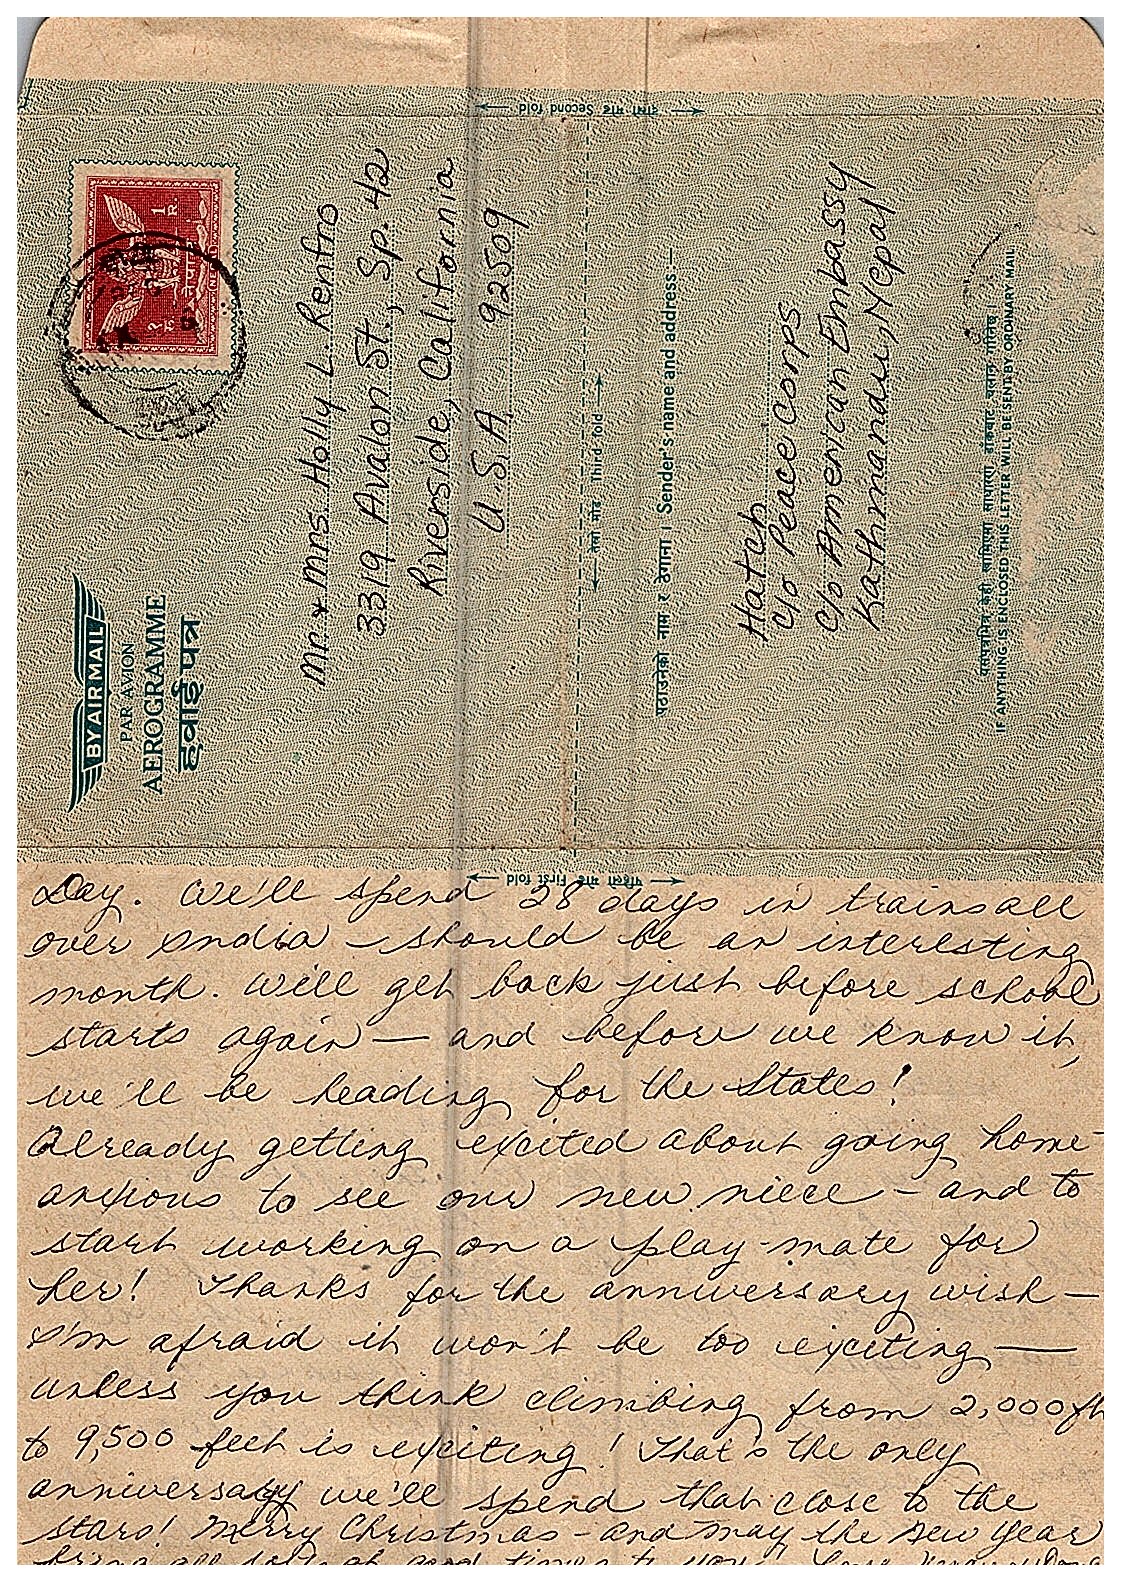 दोस्रो मोड Second fold
1 R.
१ रु.
नेपाल
NEPAL
BY AIR MAIL
PAR AVION
AEROGRAMME
हवाई पत्र
Mr. & Mrs. Holly L. Rentro
3319 Avalon St., Sp. 42
Riverside, California
U.S.A. 92509
तेस्रो मोड Third fold
पठाउनेको नाम र ठेगाना । Sender's name and address —
Hatch
c/o Peace Corps
c/o American Embassy
Kathmandu, Nepal
यसपत्रभित्र केही राखिएमा साधारण डाकबाट चलान गरिनेछ ।
IF ANYTHING IS ENCLOSED THIS LETTER WILL BE SENT BY ORDINARY MAIL
पहिलो मोड First fold
Day. We'll spend 28 days in trains all
over India – should be an interesting
month. Will get back just before school
starts again — and before we know it,
we'll be heading for the States!
Already getting excited about going home -
anxious to see our new niece – and to
start working on a play-mate for
her! Thanks for the anniversary wish —
I'm afraid it won't be too exciting —
unless you think climbing from 2,000 ft
to 9,500 feet is exciting! That's the only
anniversary we'll spend that close to the
stars! Merry Christmas – and may the New Year
bring all sorts of good times to you! Love